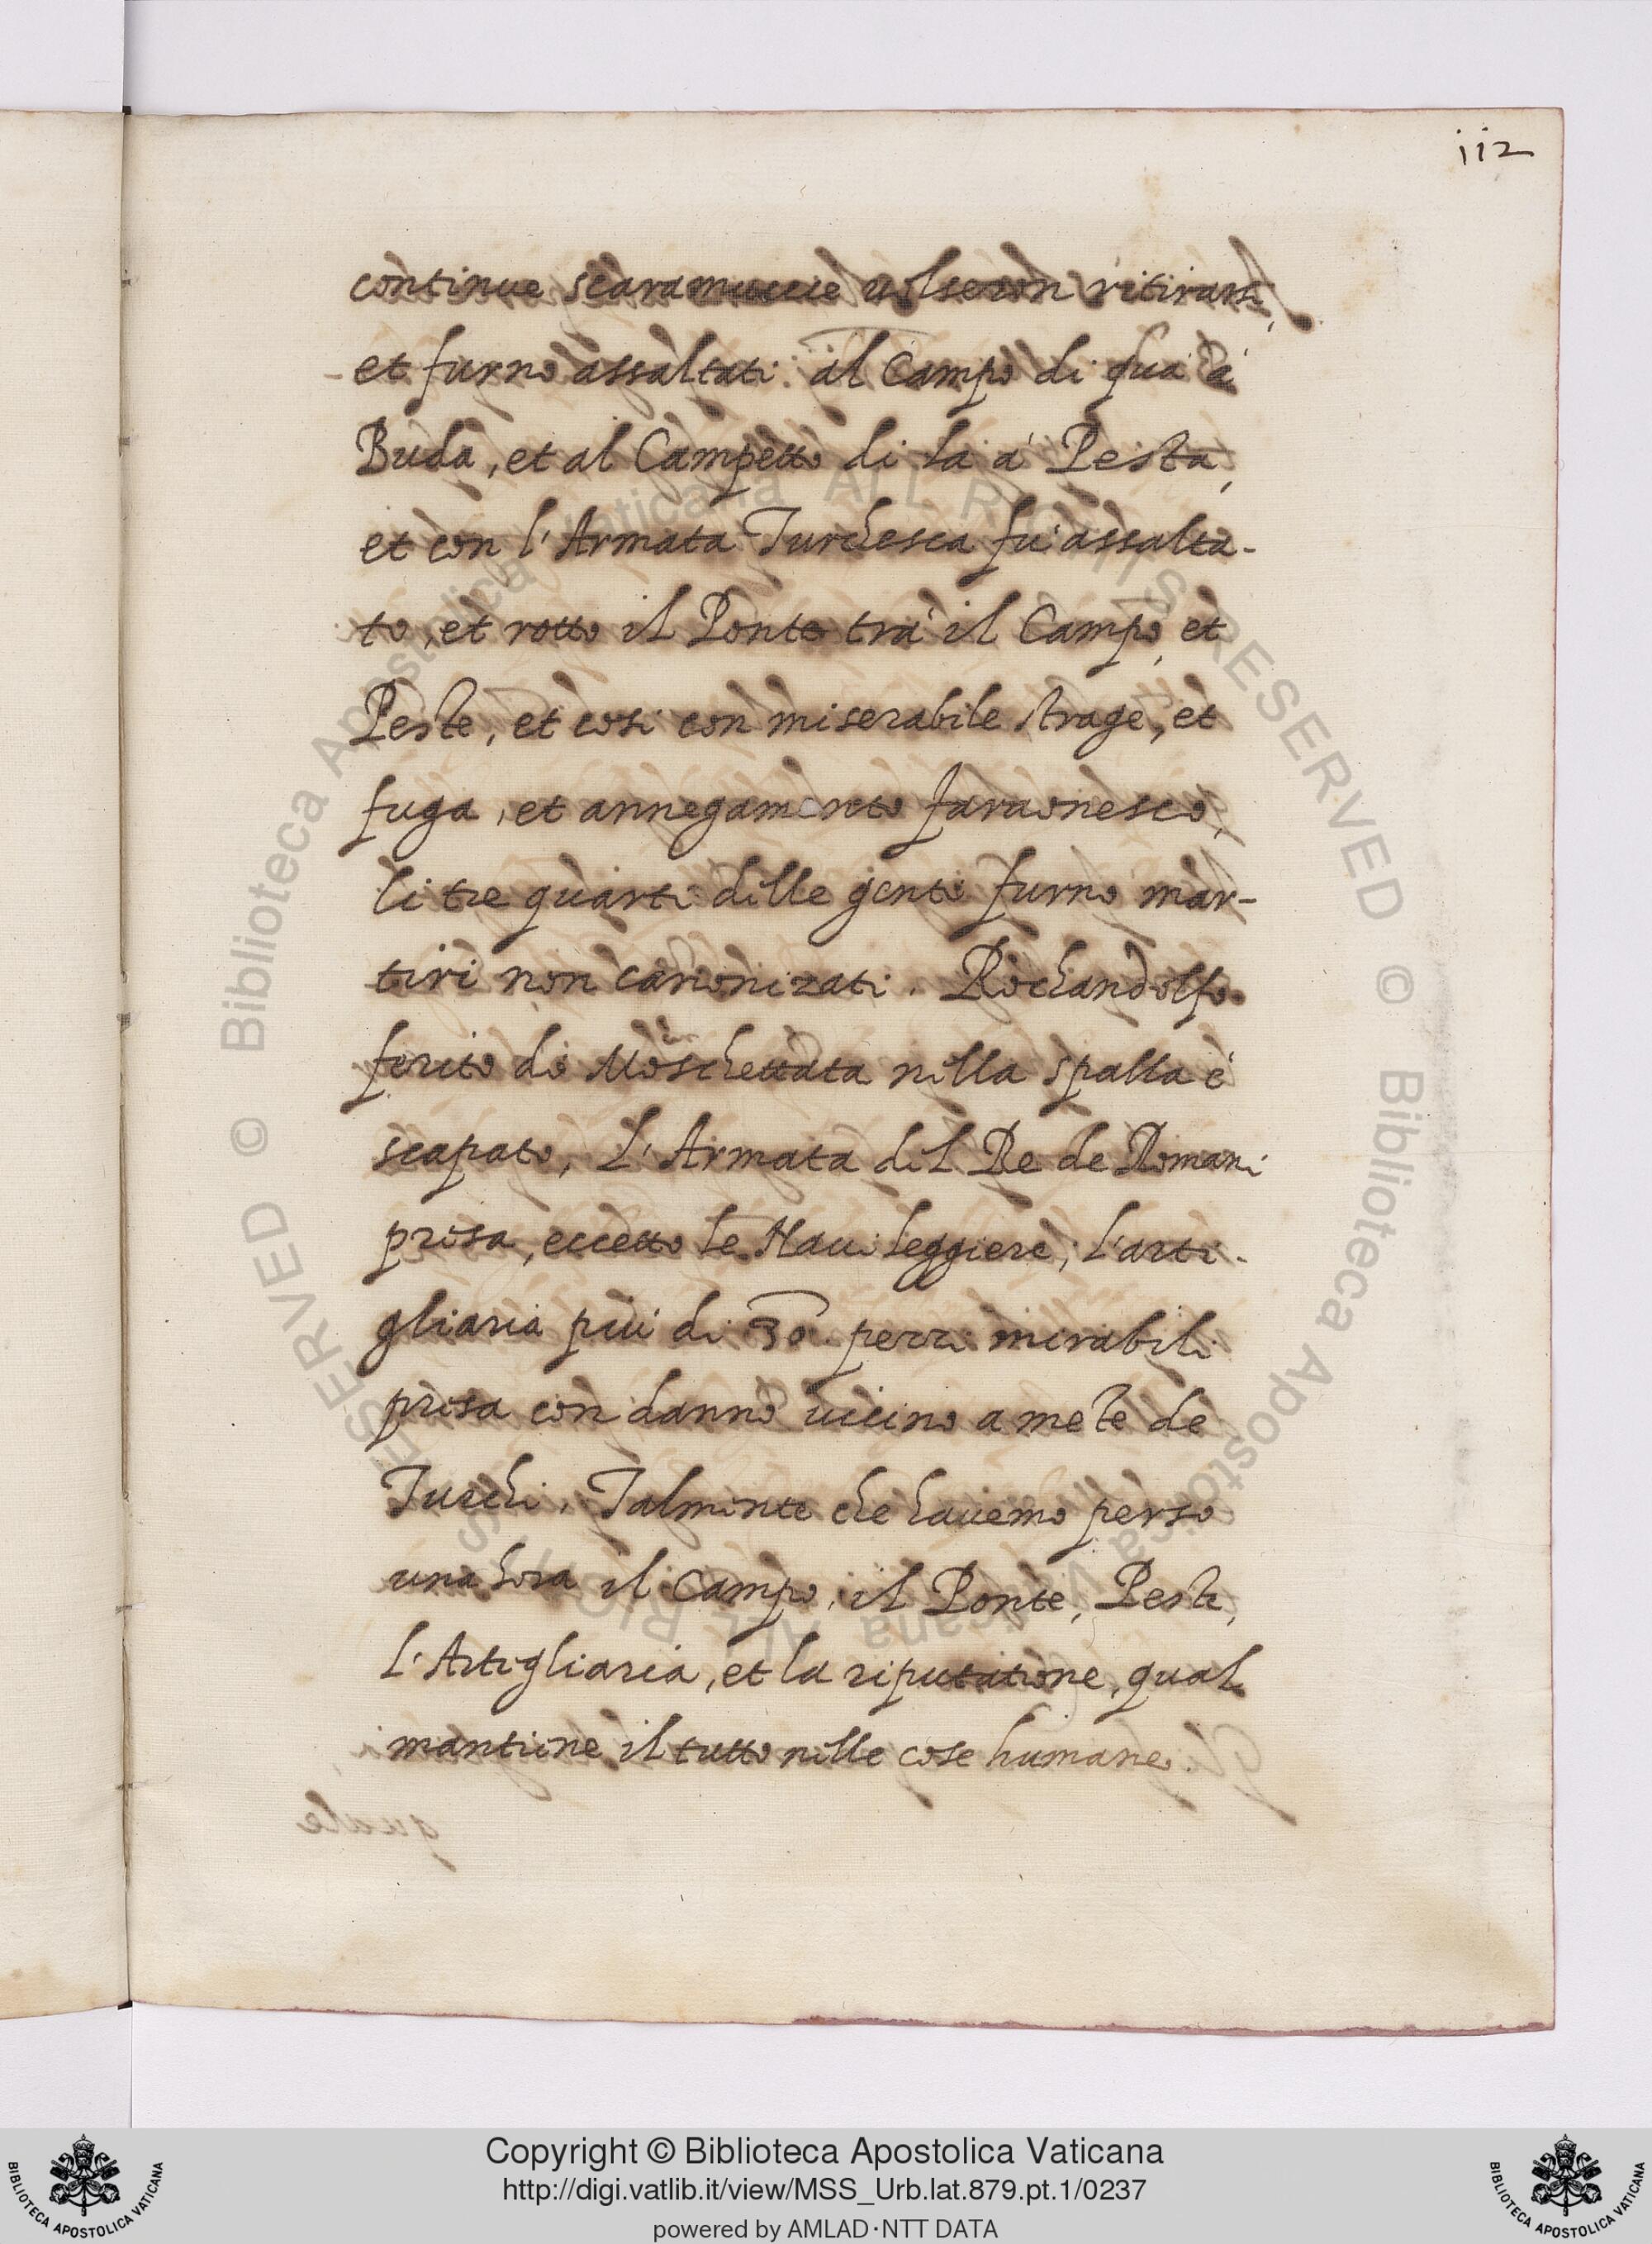 112
continue scaramuccie uolseron ritirarsi,
et furno assaltati al Campo di quà à
Buda, et al Campetto di la à Pesta,
et con l'Armata Turchesca fù assalta-
to, et rotto il Ponte trà il Campo, et
Peste, et cosi con miserabile strage, et
fuga, et annegamento faraonesco,
li tre quarti delle genti furno mar-
tiri non canonizati. Rochandolfo
ferito di Moschettata nella spalla è
scapato, L'Armata del Re de Romani
presa, eccetto le Naui leggiere, l'arti-
gliaria più di 30 pezzi mirabili
presa con danno uicino a mete de
Turchi. Talmente che hauemo perso
una hora il Campo, il Ponte, Peste,
L'Artigliaria, et la riputatione, qual
mantiene il tutto nelle cose humane.
Copyright © Biblioteca Apostolica Vaticana
http://digi.vatlib.it/view/MSS_Urb.lat.879.pt.1/0237
powered by AMLAD·NTT DATA